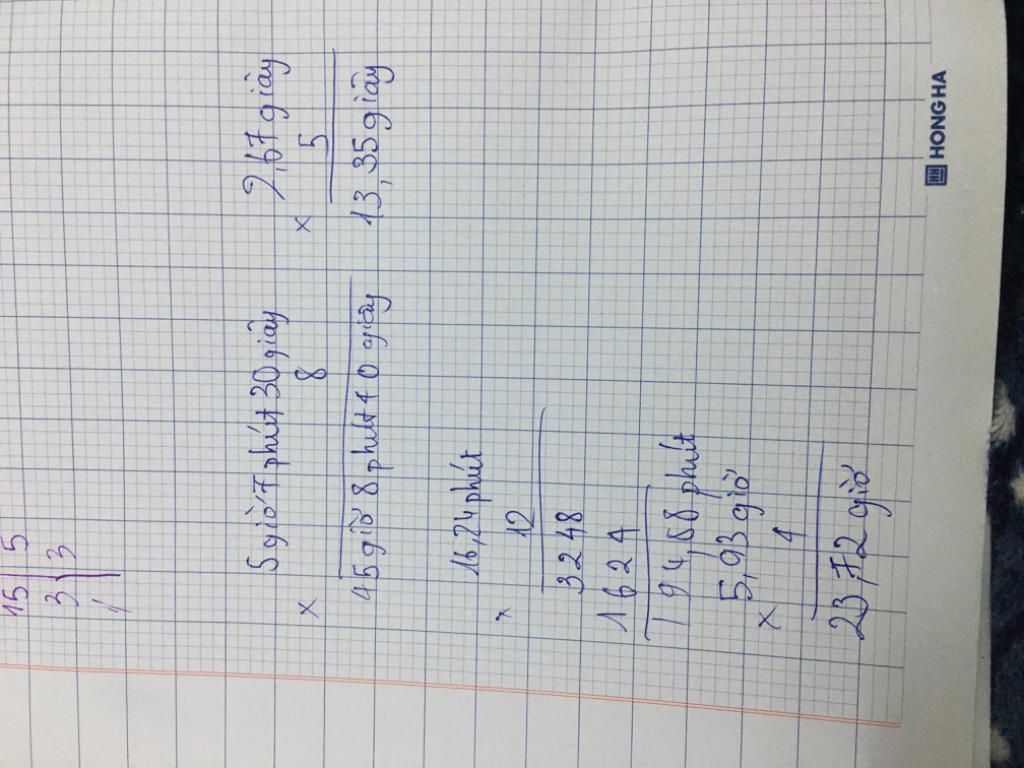 15 5
3 3
1
5 giờ 7 phút 30 giây 2,67 giây
x 8 x 5
45 giờ 8 phút 40 giây 13,35 giây
16,24 phút
x 12
3248
1624
194,88 phút
5,93 giờ
x 4
23,72 giờ
HH HONG HA